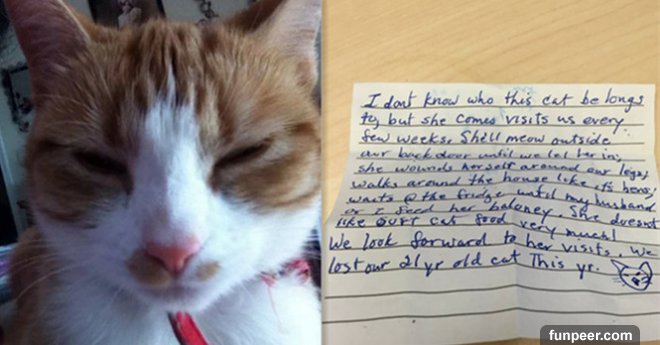 I dont know who this cat belongs
to, but she comes visits us every
few weeks. She'll meow outside
our back door until we let her in;
she wounds herself around our legs,
walks around the house like its hers;
waits @ the fridge until my husband
or I feed her baloney. She doesnt
like OUR cat food very much!
We look forward to her visits. We
lost our 21 yr old cat This yr.
funpeer.com